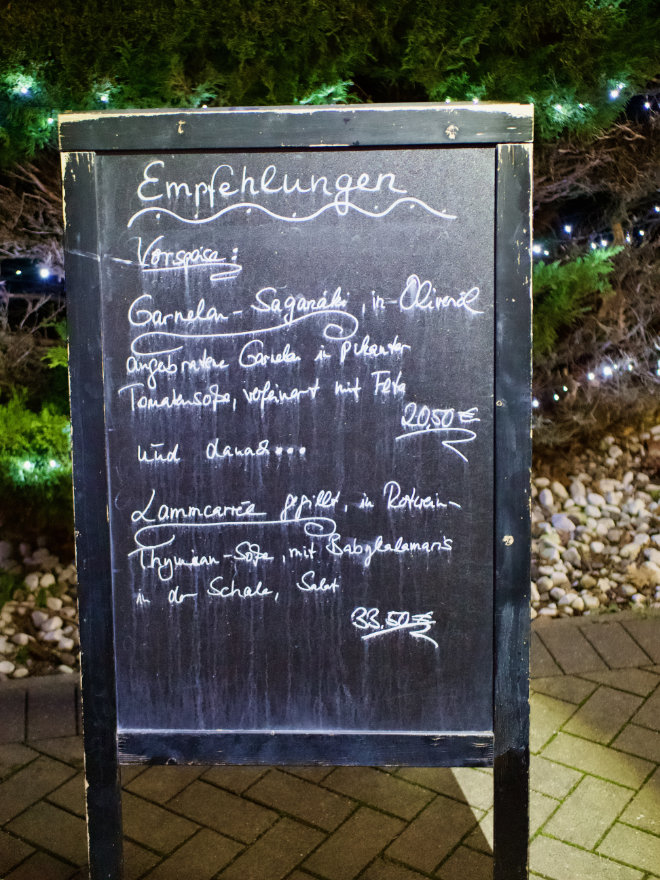 Empfehlungen
Vorspeise:
Garnelen-Saganaki, in Olivenöl
angebratene Garnelen in pikanter
Tomatensoße, verfeinert mit Feta
20,50 €
Und danach...
Lammcarrée gegrillt, in Rotwein-
Thymian-Soße, mit Babykalamaris
in der Schale, Salat
33,50 €